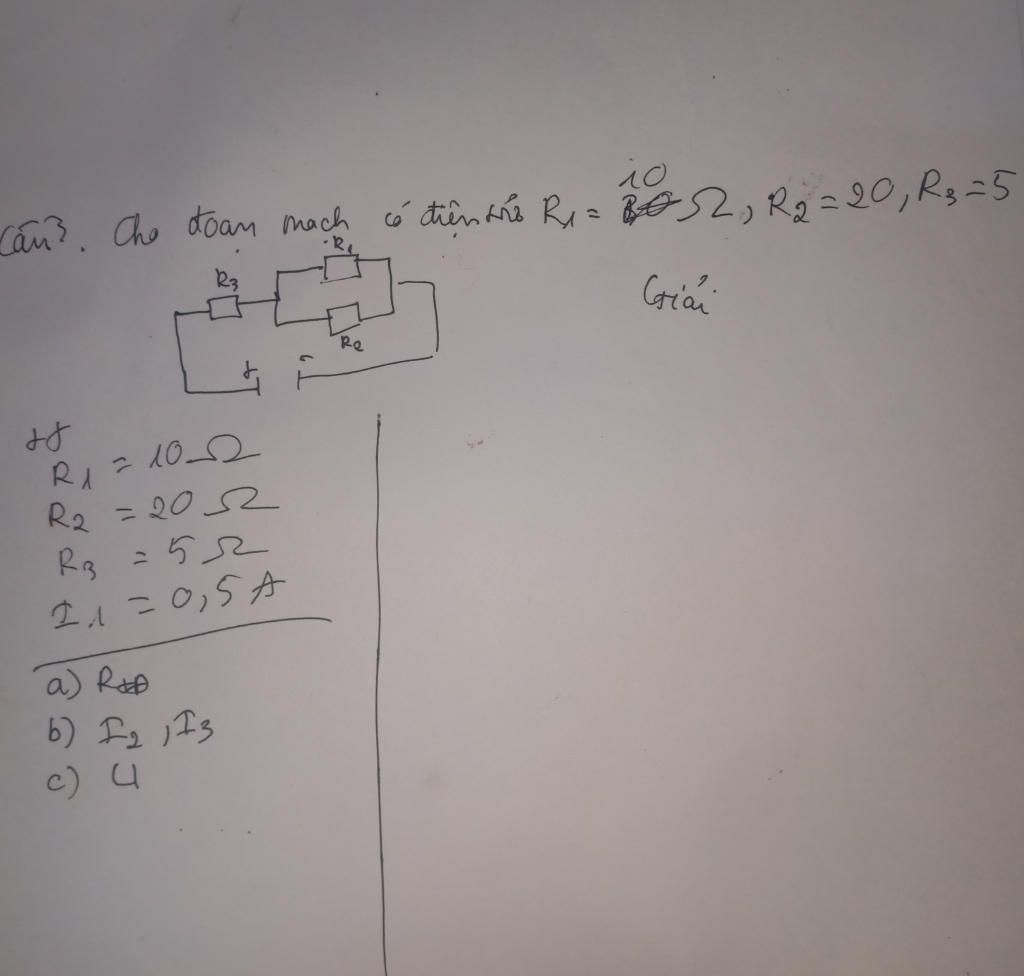 Câu 3. Cho đoạn mạch có điện trở R1 = 10 Ω, R2 = 20, R3 = 5
R1
R3
Giải
R2
+ -
tt
R1 = 10 Ω
R2 = 20 Ω
R3 = 5 Ω
I1 = 0,5 A
a) Rtđ
b) I2, I3
c) U